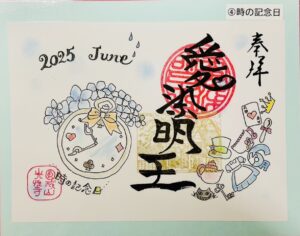 ④時の記念日
奉拝
2025 June
愛染明王
時の記念日